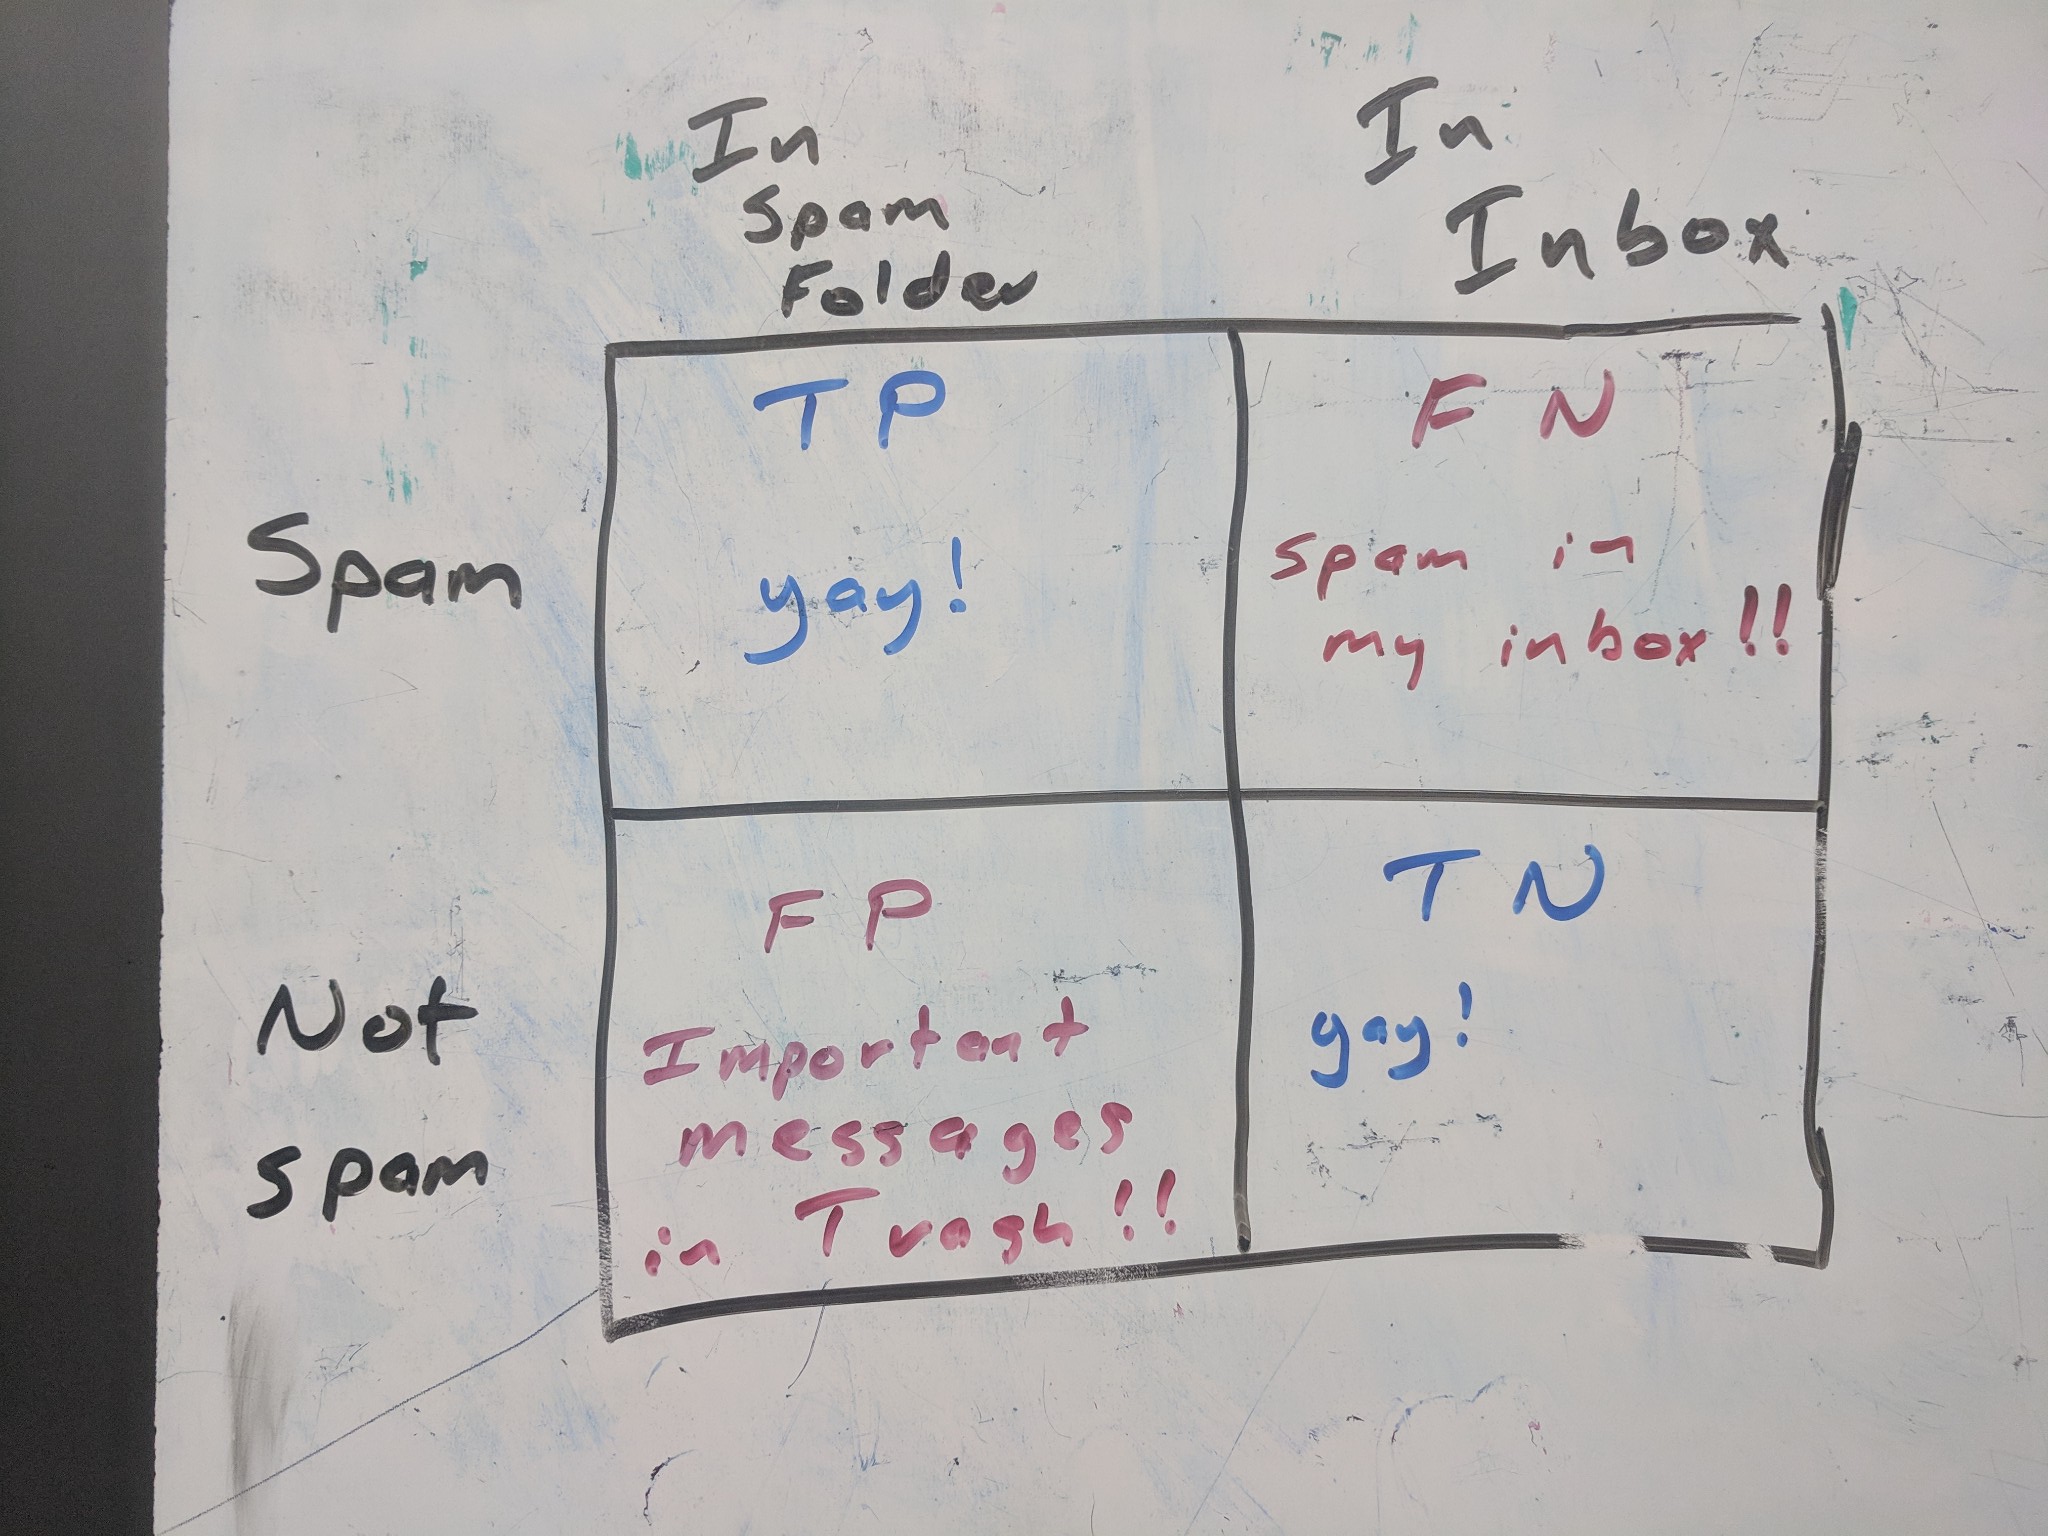 In
Spam
Folder
In
Inbox
Spam
TP
yay!
FN
spam in
my inbox!!
Not
spam
FP
Important
messages
in Trash!!
TN
yay!